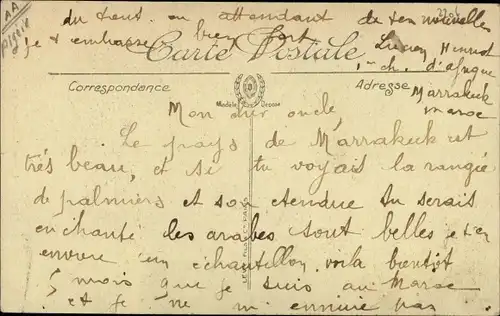 Mon cher oncle,
Le pays de Marrakeck est
très beau, et si tu voyais la rangée
de palmiers et son etendue tu serais
enchanté les arabes sont belles je t'en
envoie un échantillon, voila bientôt
mois que je suis au Maroc
et je ne m'ennuie pas
du tout. en attendant de tes nouvelles
je t'embrasse bien fort
Lucien
ch. d'afrique
Marrakeck
maroc
Carte Postale
Correspondance
Adresse
Modèle Déposé
AA